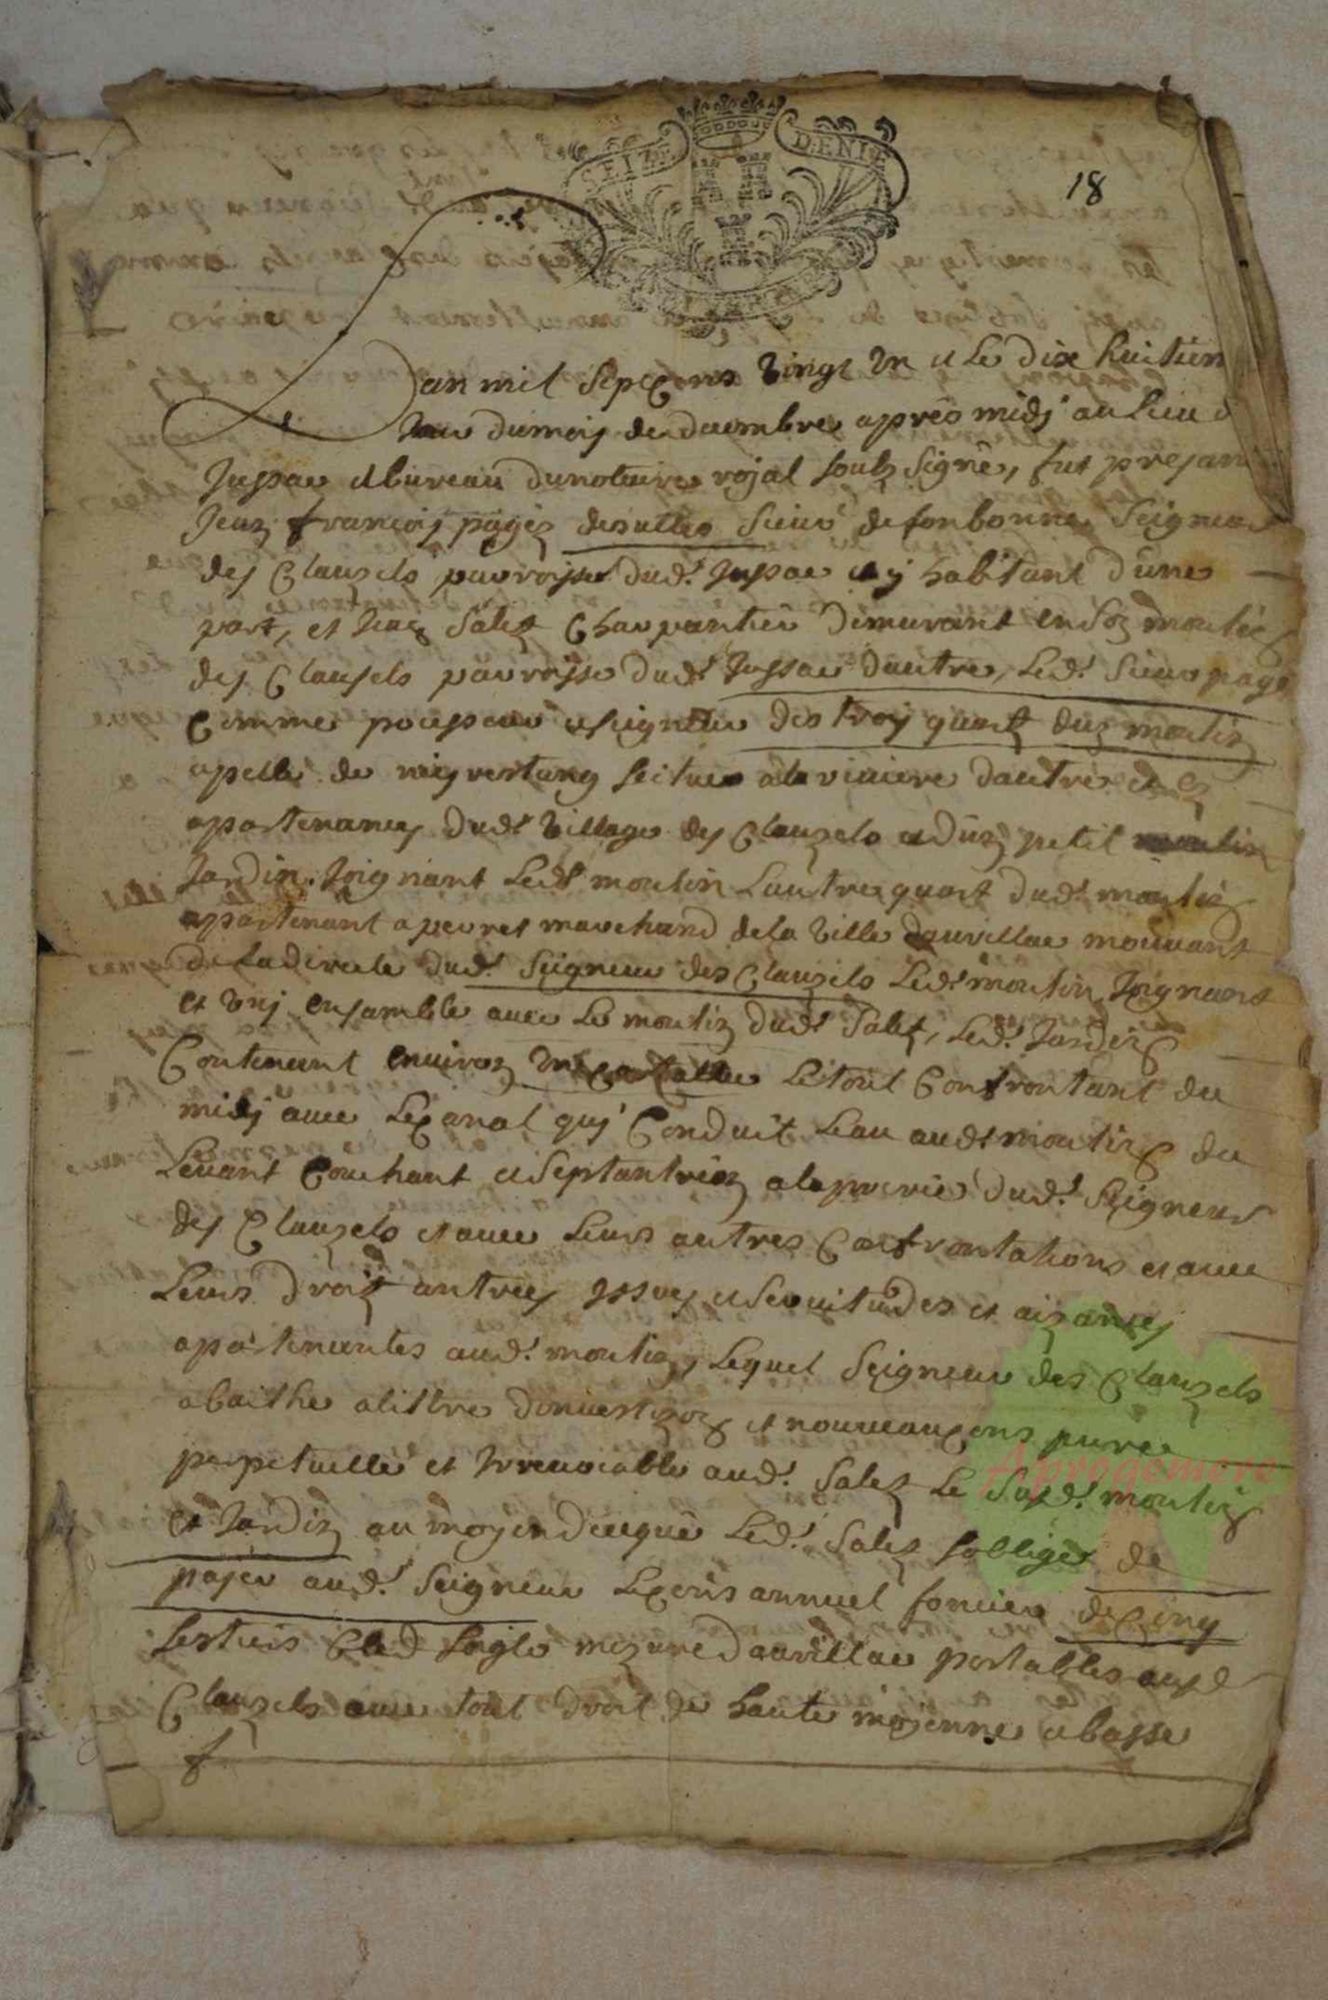 SEIZE DENIE
18
Lan mil sept Cens vingt un et Le dix huitiem
Jour du mois de decembre apres midy au Lieu d
Jussac et bureau du notaire royal soubz signé, fut presant
Jean francois pagés desuttes Sieur de fonbonne Seigneur
des Clauzels parroisse dud.t Jussac et y habitant d'une
part, et Jean Salez Charpantier demurant en son moulin
des Clauzels parroisse dud.t Jussac dautre, Led.t Sieur pagé
Comme possesseur et seigneur des troy quart dun moulin
apellé de situé a la riviere dautre et
apartenances dud.t village des Clauzels et dun petit
Jardin Joignant Led.t moulin Lautre quart dud.t moulin
apartenant a peyret marchand de la ville daurillac mouvant
de la directe dud.t Seigneur des Clauzels Led.t moulin Joignant
et uny ensamble avec Le moulin dud.t Salez, Led.t Jardin
Contenant environ Le tout Confrontant du
midy avec Le Canal quy Conduit Leau aud.t moulin du
Levant Couchant et Septantrion a la prerie dud.t Seigneur
des Clauzels et avec Leurs autres Confrontations et avec
Leurs droitz antrées Issues et servitudes et aizances
apartenantes aud.t moulin, Lequel Seigneur des Clauzels
a baithé a tiltre d'investizon et nouveau Cens pure
perpetuelle et Irrevoiable aud.t Salez Le susd.t moulin
et Jardin au moyen de ce que Led.t Salez soblige de
payer aud.t Seigneur Le Cens annuel foncier de Cinq
sestiers bled soigle mezure daurillac portables ausd
Clauzels avec tout droit de haute moyenne et basse
Aprogemere